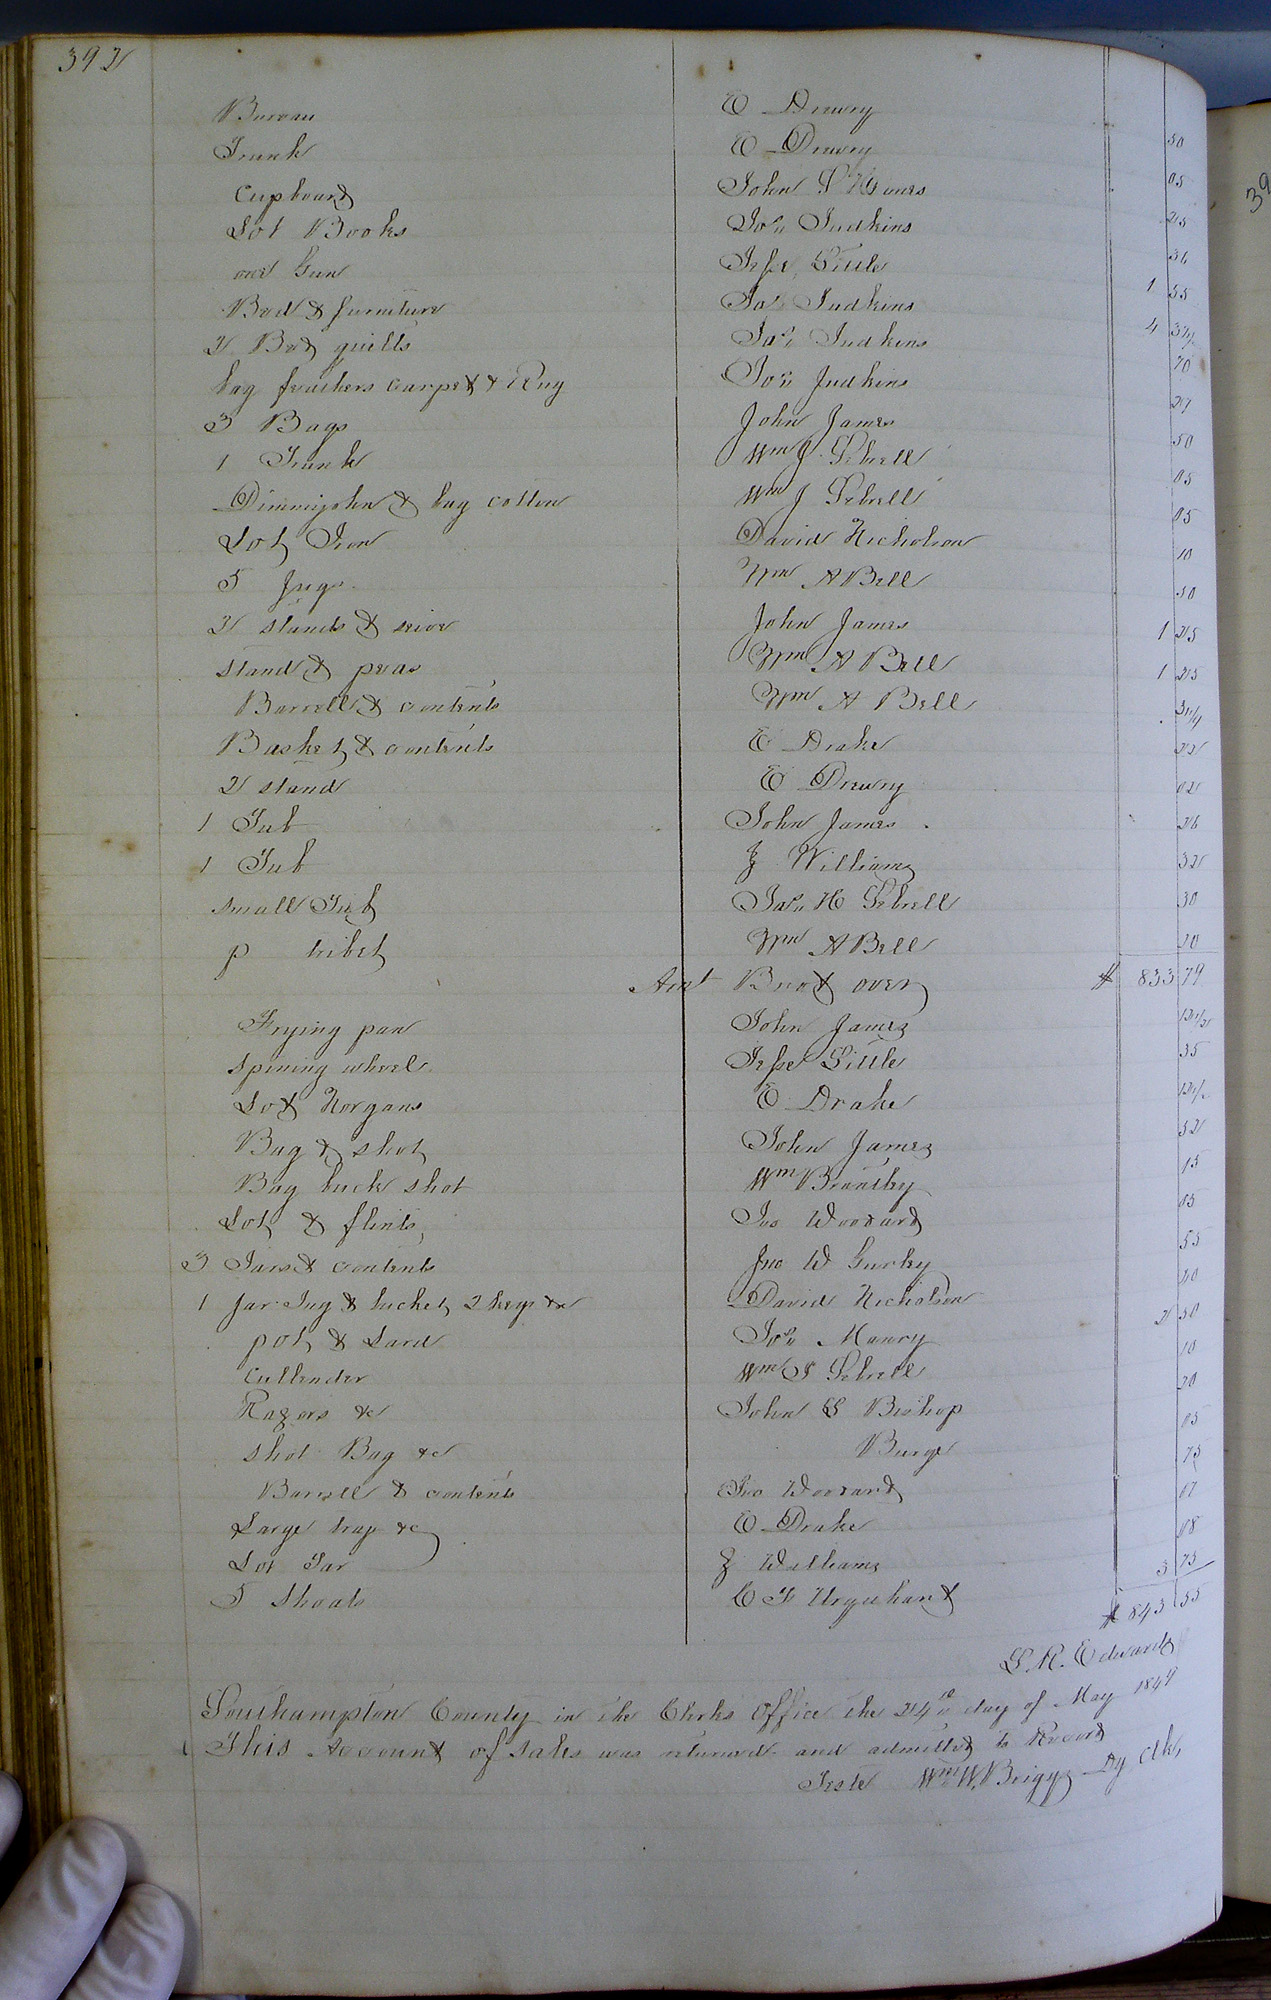 392
Bureau E Drewry 50
Trunk E Drewry 05
Cupboard John S 25
Lot Books Jos. Judkins 36
one Gun Jesse Little 1 55
Bed & furniture Jas. Judkins 4 37½
2 Bed quilts Jas. Judkins 70
bag feathers carpet & Rug Jos. Judkins 27
3 Bags John James 50
1 Trunk Wm J Sebrell 05
Dimmijohn & bag cotton Wm J Sebrell 05
Lot Iron David Nicholson 10
5 Jugs Wm A Bell 50
2 stands & seive John James 1 25
stand & peas Wm A Bell 1 25
Barrell & contents Wm A Bell 31¼
Basket & contents E Drake 22
2 stand E Drewry 02
1 Tub John James 26
1 Tub J Williams 32
small Tub Jas. H Sebrell 30
p tribet Wm A Bell 10
Amt Brot over $ 833 79
Frying pan John James 12½
Spining wheel Jesse Little 35
Lot Norgans E Drake 12½
Bag & shot John James 52
Bag buck shot Wm Brantley 15
Lot & flints, Jno Woodard 05
3 Jars & contents Jno W Gurley 55
1 jar Jug & bucket 2 kegs &c David Nicholson 20
pot & Lard Jos. Maury 2 50
Cullender Wm J Sebrell 10
Razors &c John S Bishop 20
Shot Bag &c Burge 05
Barrell & contents Jno Woodard 75
Large trap &c E Drake 07
Lot Tar J Williams 08
5 Shoats C F Urquhart 3 75
$ 843 55
L. R. Edwards
Southampton County in the Clerks Office the 24th day of May 1844
This Account of sales was returned and admitted to Record
Teste Wm W. Briggs Dy Clk,